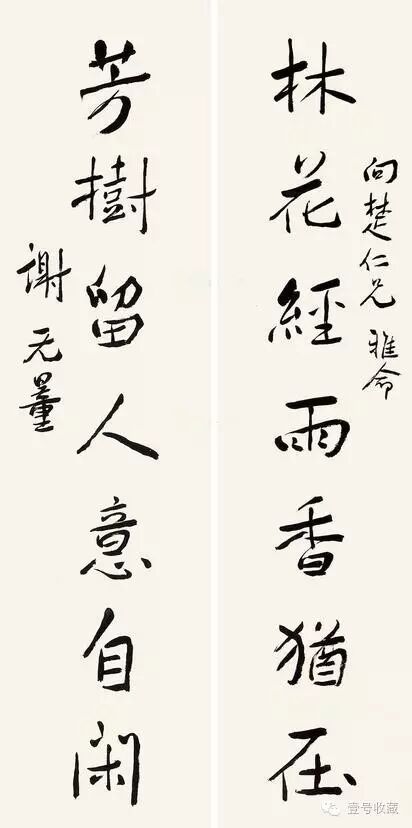 林花經雨香猶在
向楚仁兄 雅命
芳樹留人意自閑
謝无量
壹号收藏